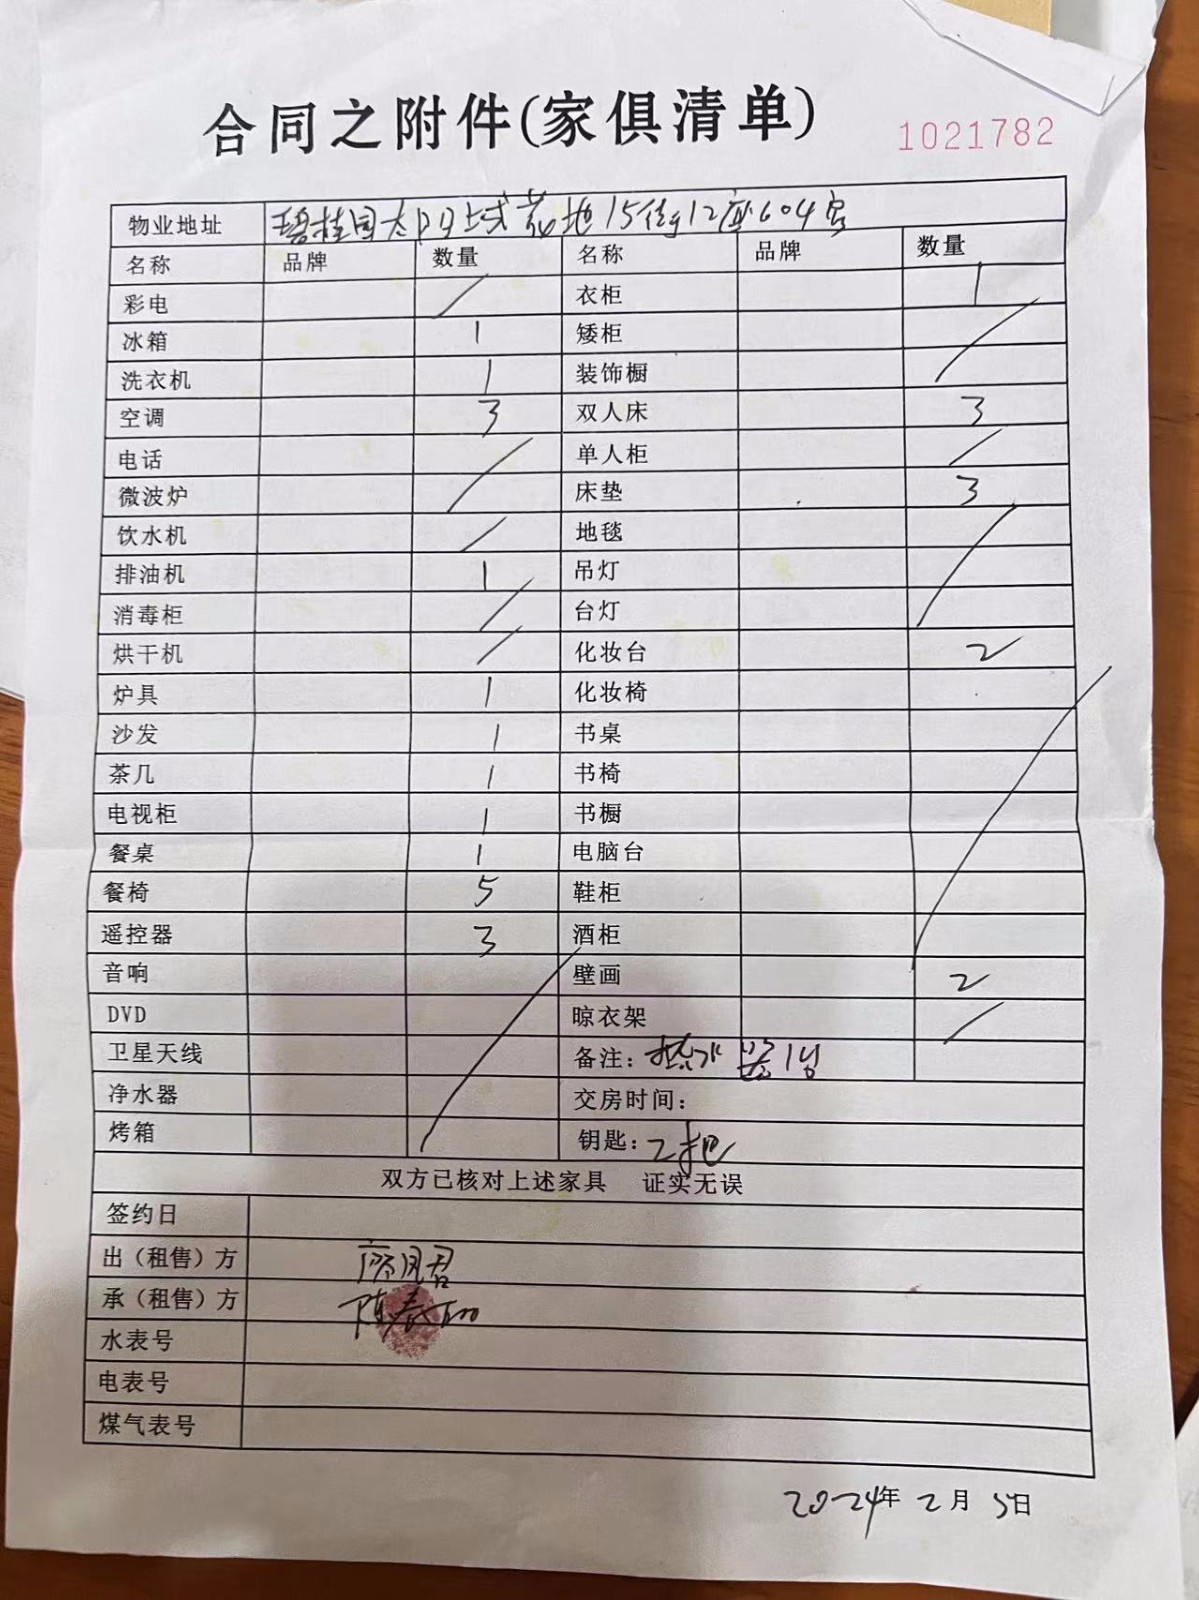 合同之附件(家俱清单)
1021782
物业地址 碧桂园太阳城花地15街12座604房
名称 品牌 数量 名称 品牌 数量
彩电 / 衣柜 1
冰箱 1 矮柜 /
洗衣机 1 装饰橱
空调 3 双人床 3
电话 / 单人柜 /
微波炉 床垫 3
饮水机 / 地毯 /
排油机 1 吊灯
消毒柜 / 台灯
烘干机 / 化妆台 2
炉具 1 化妆椅 /
沙发 1 书桌
茶几 1 书椅
电视柜 1 书橱
餐桌 1 电脑台
餐椅 5 鞋柜
遥控器 3 酒柜
音响 / 壁画 2
DVD 晾衣架 /
卫星天线 备注：热水器1台
净水器 交房时间：
烤箱 钥匙：2把
双方已核对上述家具 证实无误
签约日
出（租售）方
承（租售）方 陈春
水表号
电表号
煤气表号
2024年2月5日